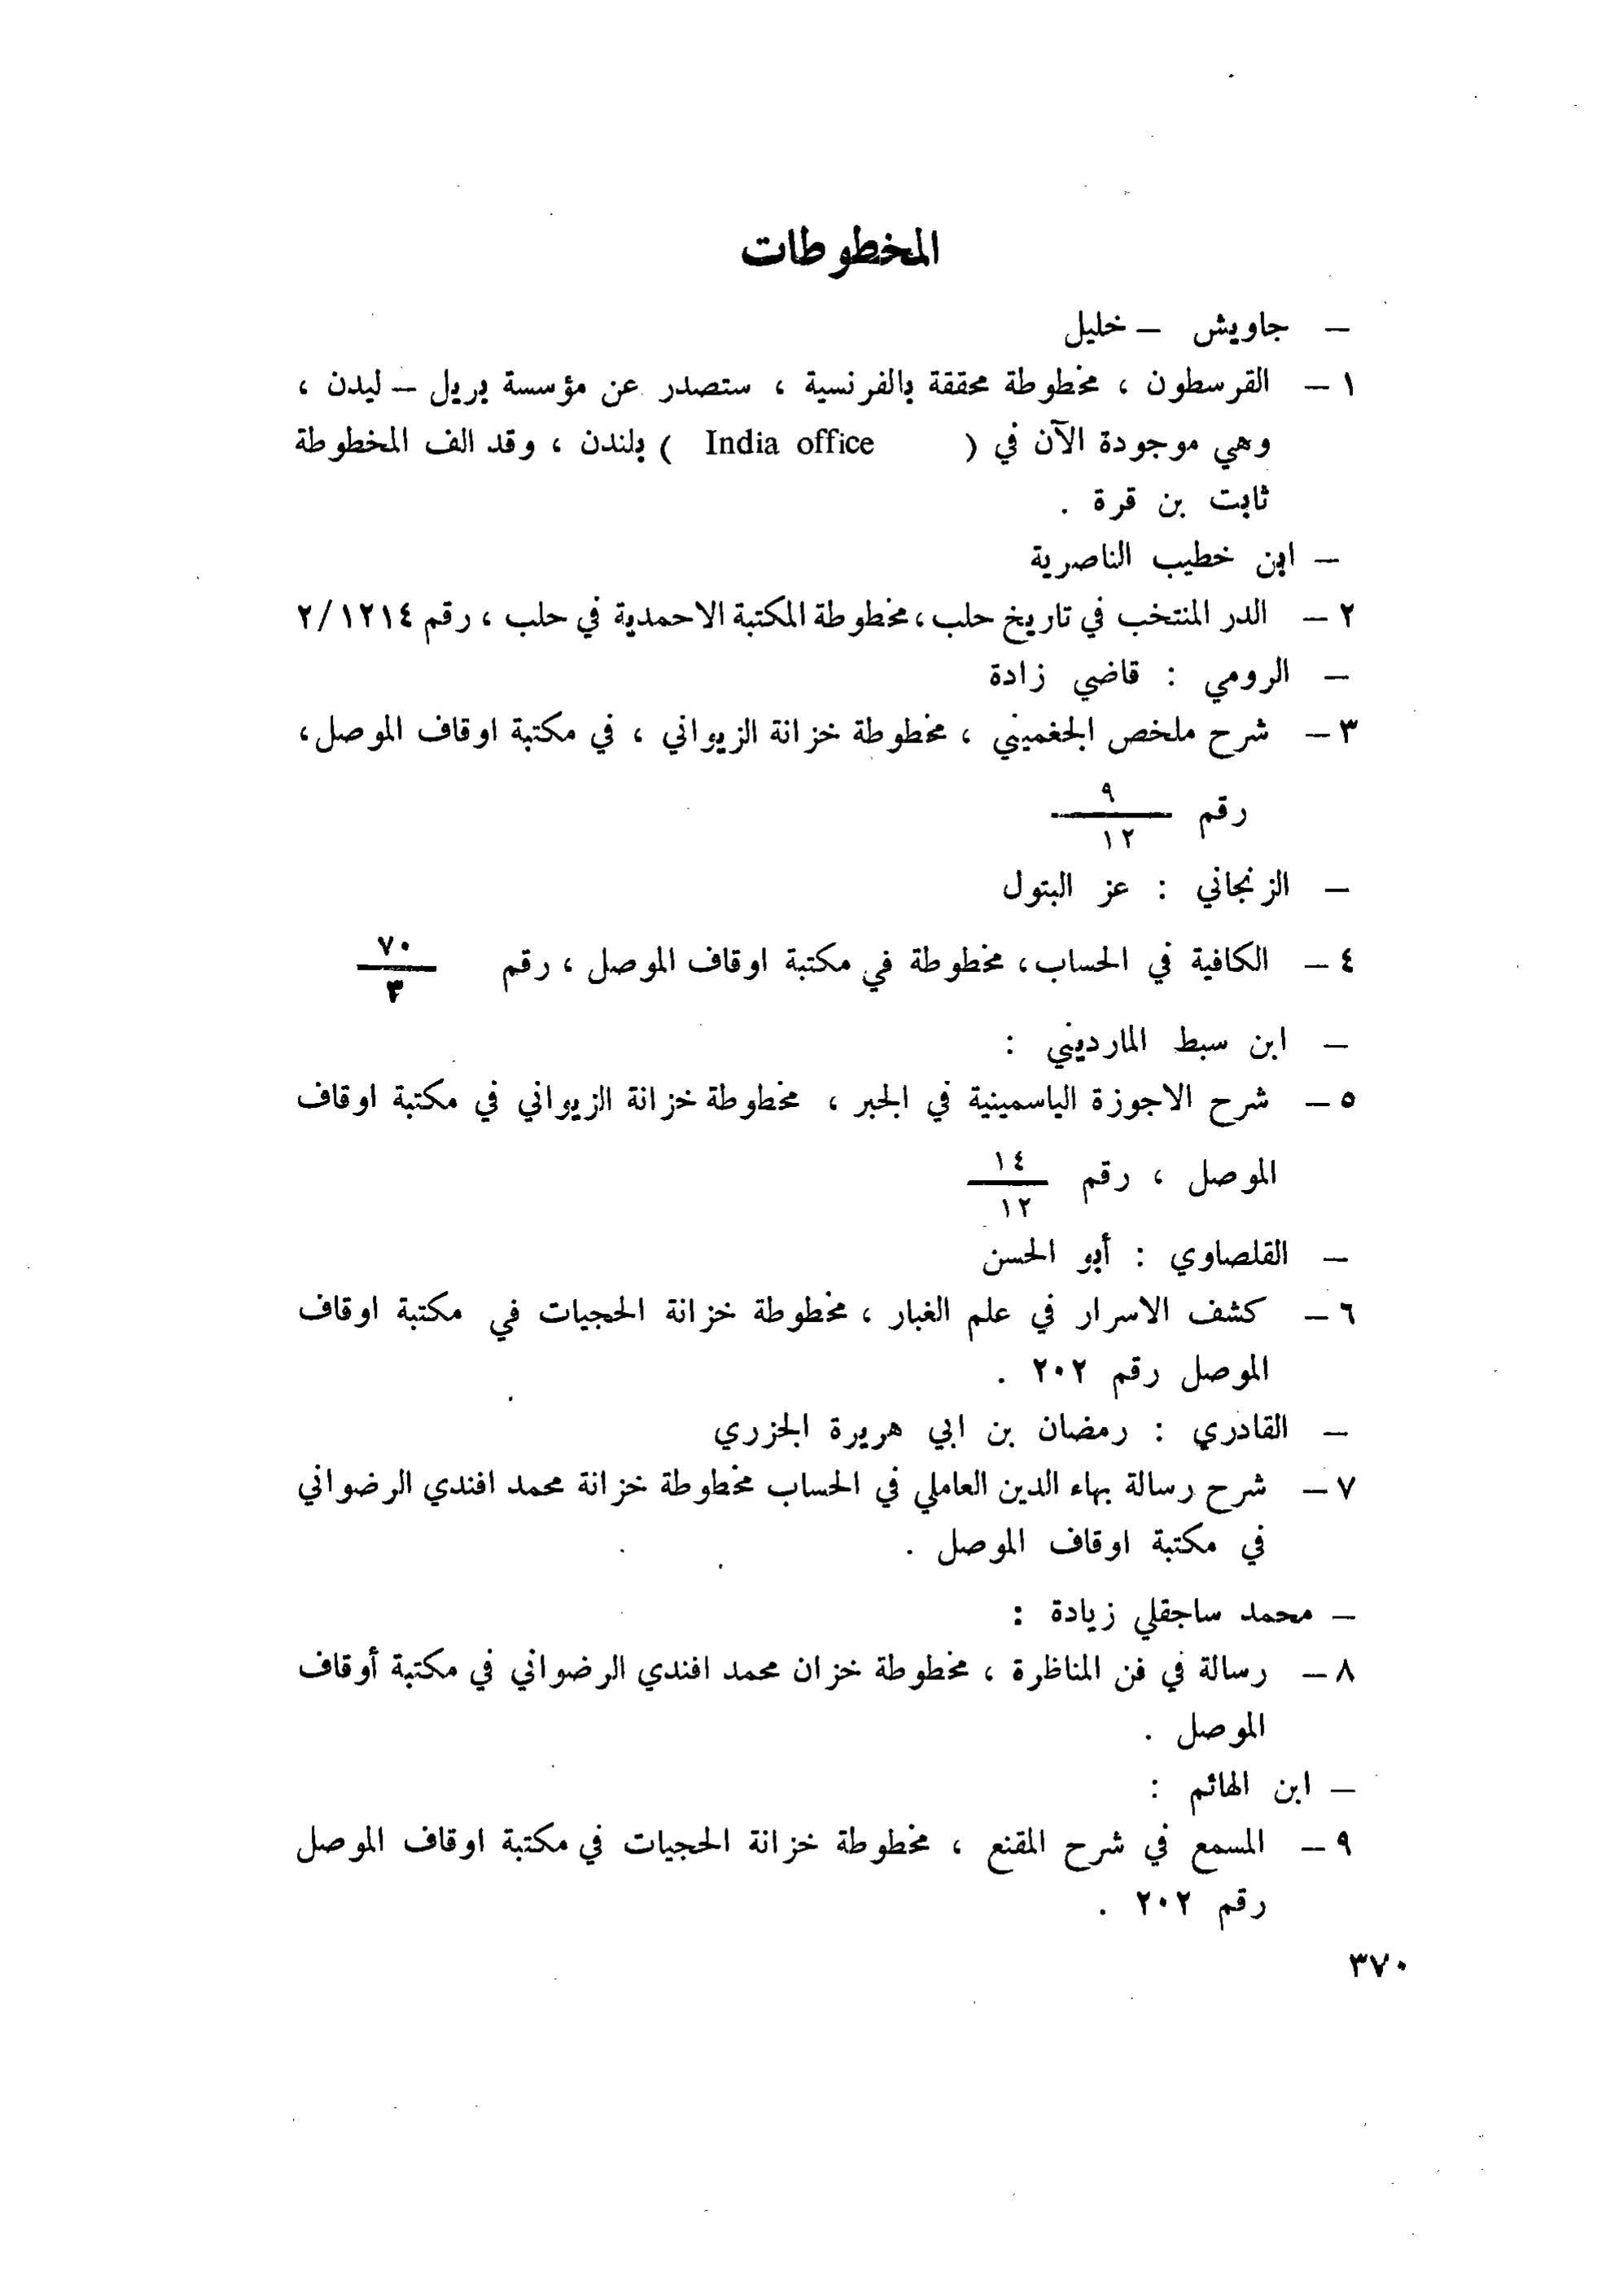 المخطوطات
— جاويش — خليل
١ — القرسطون ، مخطوطة محققة بالفرنسية ، ستصدر عن مؤسسة بريل — ليدن ،
وهي موجودة الآن في ( India office ) بلندن ، وقد الف المخطوطة
ثابت بن قرة .
— ابن خطيب الناصرية
٢ — الدر المنتخب في تاريخ حلب ، مخطوطة المكتبة الاحمدية في حلب ، رقم ٢/١٢١٤
— الرومي : قاضي زادة
٣ — شرح ملخص الجغميني ، مخطوطة خزانة الزيواني ، في مكتبة اوقاف الموصل ،
رقم ٩/١٢
— الزنجاني : عز البتول
٤ — الكافية في الحساب ، مخطوطة في مكتبة اوقاف الموصل ، رقم ٧٠/٣
— ابن سبط المارديني :
٥ — شرح الاجوزة الياسمينية في الجبر ، مخطوطة خزانة الزيواني في مكتبة اوقاف
الموصل ، رقم ١٤/١٢
— القلصاوي : أبو الحسن
٦ — كشف الاسرار في علم الغبار ، مخطوطة خزانة الحجيات في مكتبة اوقاف
الموصل رقم ٢٠٢ .
— القادري : رمضان بن ابي هريرة الجزري
٧ — شرح رسالة بهاء الدين العاملي في الحساب مخطوطة خزانة محمد افندي الرضواني
في مكتبة اوقاف الموصل .
— محمد ساجقلي زيادة :
٨ — رسالة في فن المناظرة ، مخطوطة خزان محمد افندي الرضواني في مكتبة أوقاف
الموصل .
— ابن الهائم :
٩ — المسمع في شرح المقنع ، مخطوطة خزانة الحجيات في مكتبة اوقاف الموصل
رقم ٢٠٢ .
٣٧٠